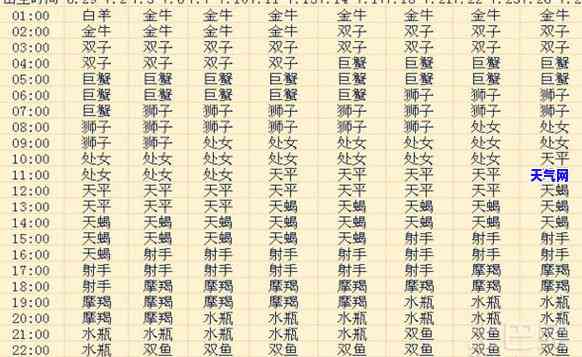 01:00 白羊 金牛 金牛 金牛 金牛 金牛 金牛 金牛
02:00 金牛 金牛 金牛 金牛 双子 双子 双子 双子
03:00 双子 双子 双子 双子 双子 双子 双子 双子
04:00 双子 双子 双子 双子 巨蟹 巨蟹 巨蟹 巨蟹
05:00 巨蟹 巨蟹 巨蟹 巨蟹 巨蟹 巨蟹 巨蟹 巨蟹
06:00 巨蟹 巨蟹 巨蟹 巨蟹 巨蟹 狮子 狮子 狮子
07:00 巨蟹 狮子 狮子 狮子 狮子 狮子 狮子 狮子
08:00 狮子 狮子 狮子 狮子 狮子 狮子 处女 处女
09:00 狮子 狮子 处女 处女 处女 处女 处女 处女
10:00 处女 处女 处女 处女 处女 处女 处女 天平
11:00 处女 处女 处女 天平 天平 天平 天平 天气网
12:00 天平 天平 天平 天平 天平 天平 天平 天蝎
13:00 天平 天平 天平 天蝎 天蝎 天蝎 天蝎 天蝎
14:00 天蝎 天蝎 天蝎 天蝎 天蝎 天蝎 天蝎 天蝎
15:00 天蝎 天蝎 天蝎 天蝎 天蝎 射手 射手 射手
16:00 天蝎 射手 射手 射手 射手 射手 射手 射手
17:00 射手 射手 射手 射手 射手 射手 摩羯 摩羯
18:00 射手 摩羯 摩羯 摩羯 摩羯 摩羯 摩羯 摩羯
19:00 摩羯 摩羯 摩羯 摩羯 摩羯 水瓶 水瓶 水瓶
20:00 摩羯 摩羯 水瓶 水瓶 水瓶 水瓶 水瓶 水瓶
21:00 水瓶 水瓶 水瓶 水瓶 水瓶 双鱼 双鱼 双鱼
22:00 水瓶 双鱼 双鱼 双鱼 双鱼 双鱼 双鱼 双鱼